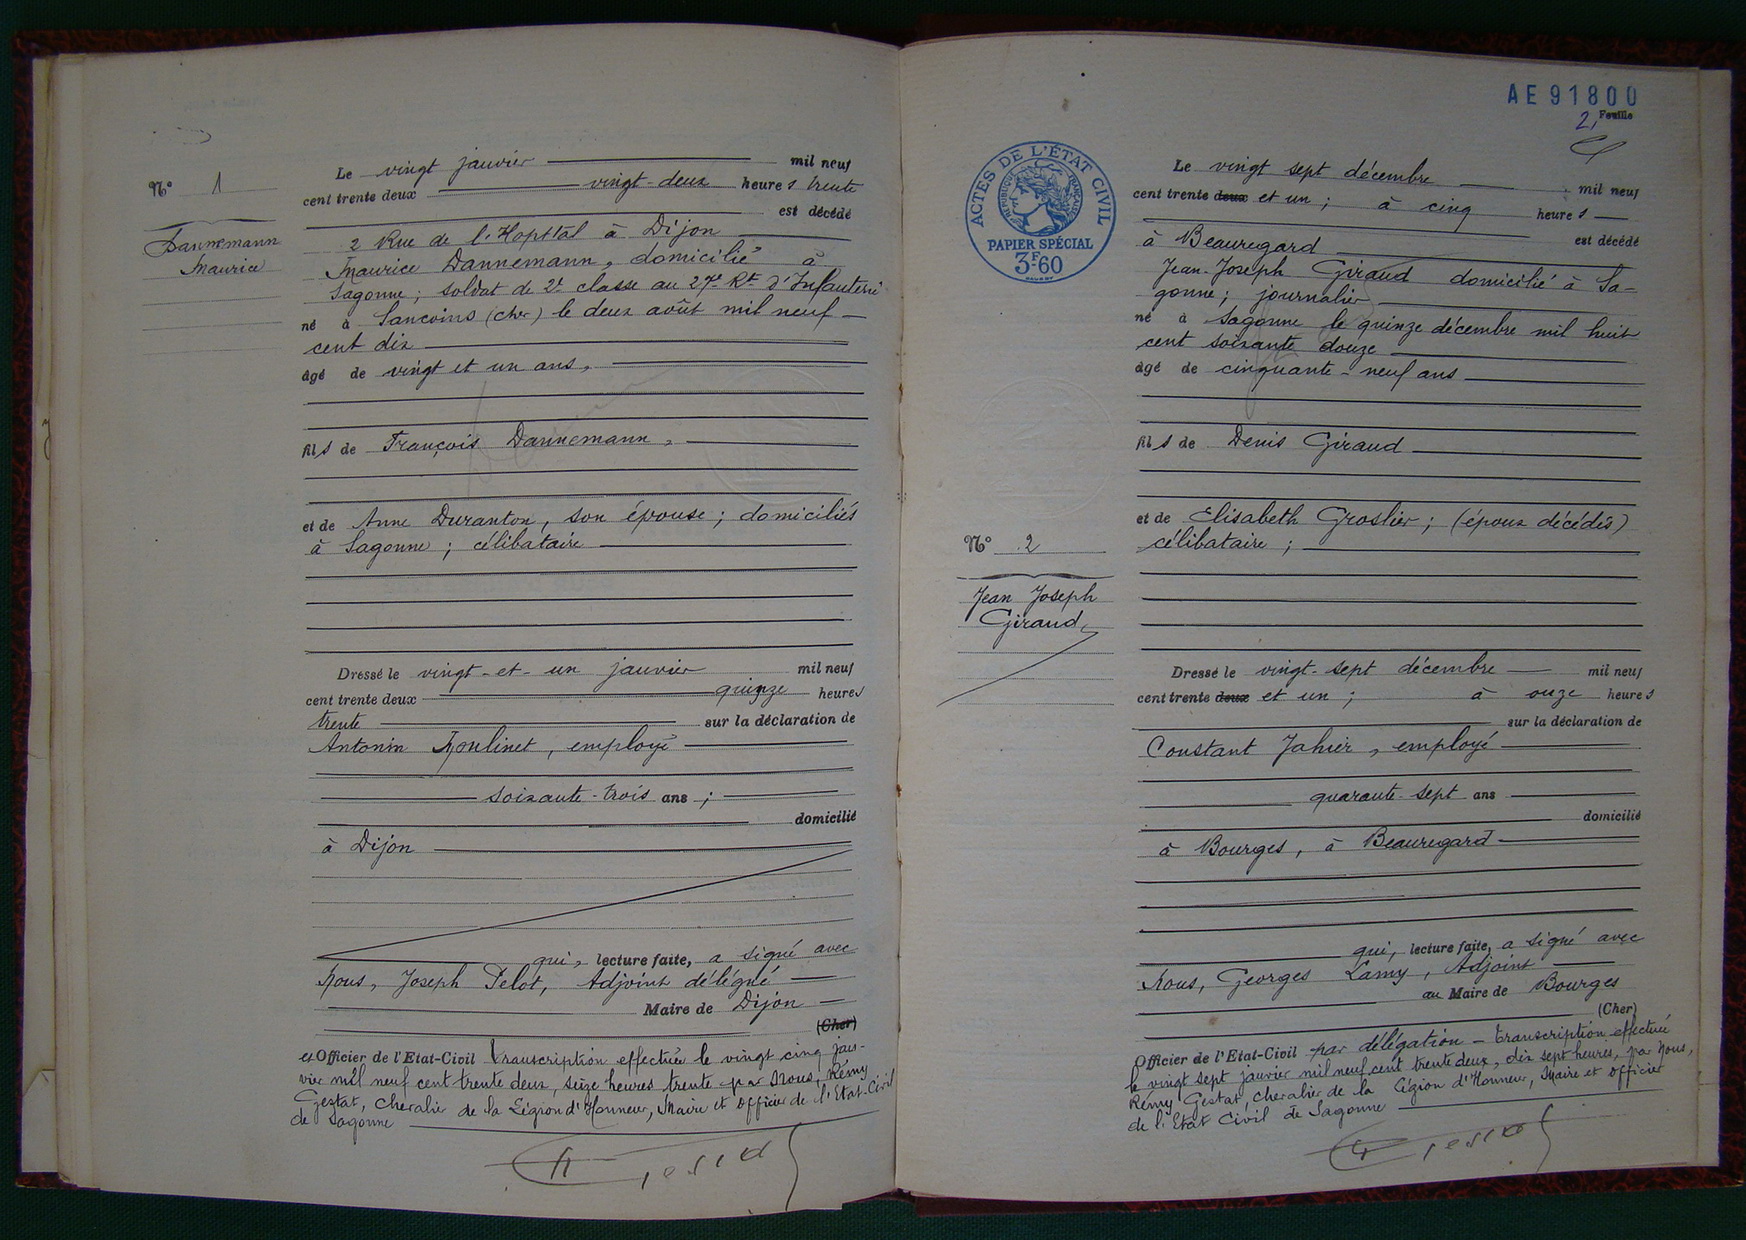 N° 1
Dannemann
Maurice
Le vingt janvier mil neuf
cent trente deux vingt-deux heures trente
est décédé
2 Rue de l'Hopttal à Dijon
Maurice Dannemann, domicilié à
Sagonne; soldat de 2e classe au 27e Rt d'Infanterie
né à Sancoins (cher) le deux août mil neuf
cent dix
âgé de vingt et un ans,
fils de François Dannemann,
et de Anne Duranton, son épouse; domiciliés
à Sagonne; célibataire
Dressé le vingt-et-un janvier mil neuf
cent trente deux quinze heures
trente sur la déclaration de
Antonin Moulinet, employé
soixante-trois ans;
domicilié
à Dijon
qui, lecture faite, a signé avec
Nous, Joseph Pelot, Adjoint délégué
Maire de Dijon
(Cher)
et Officier de l'Etat-Civil transcription effectuée le vingt cinq jan-
vier mil neuf cent trente deux, seize heures trente par Nous, Rémy
Gestat, chevalier de la Légion d'Honneur, Maire et officier de l'Etat-Civil
de Sagonne
AE 91800
2, Feuille
ACTES DE L'ÉTAT CIVIL
RÉPUBLIQUE FRANÇAISE
PAPIER SPÉCIAL
3F60
N° 2
Jean Joseph
Giraud
Le vingt sept décembre mil neuf
cent trente deux et un; à cinq heures
est décédé
à Beauregard
Jean-Joseph Giraud domicilié à Sa-
gonne; journalier
né à Sagonne le quinze décembre mil huit
cent soixante douze
âgé de cinquante-neuf ans
fils de Denis Giraud
et de Elisabeth Groslier; (époux décédés)
célibataire;
Dressé le vingt-sept décembre mil neuf
cent trente deux et un; à onze heures
sur la déclaration de
Constant Jahier, employé
quarante-sept ans
domicilié
à Bourges, à Beauregard
qui, lecture faite, a signé avec
Nous, Georges Lamy, Adjoint
au Maire de Bourges
(Cher)
Officier de l'Etat-Civil par délégation - transcription effectuée
le vingt sept janvier mil neuf cent trente deux, dix sept heures, par Nous,
Rémy Gestat, chevalier de la Légion d'Honneur, Maire et officier
de l'Etat Civil de Sagonne